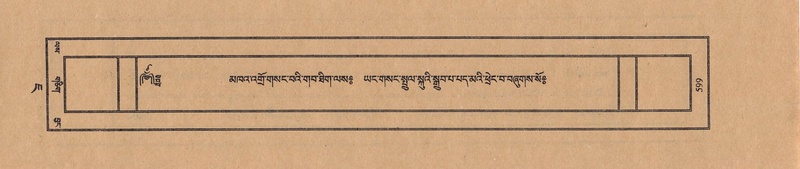 ༄༅། མཁའ་འགྲོ་གསང་བའི་གབ་ཐིག་ལས༔ ཡང་གསང་སྤྲུལ་སྐུའི་སྒྲུབ་པ་པད་མའི་ཕྲེང་བ་བཞུགས་སོ༔
599